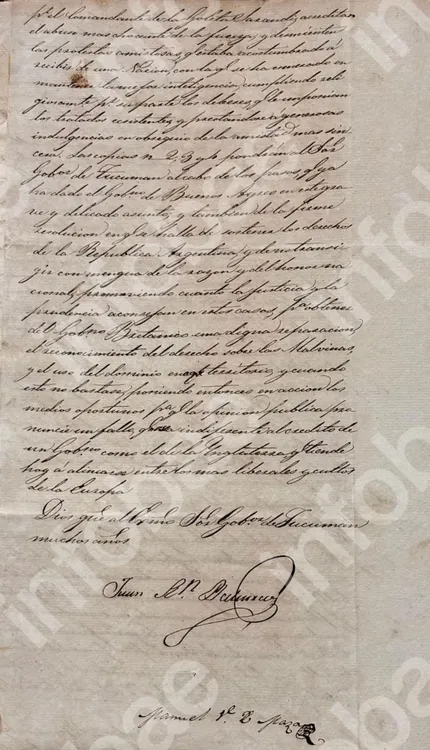 p.r el Comandante de la Goleta Sarandí, acreditan
el abuso mas chocante de la fuerza, y desmienten
las protestas amistosas, q.e estaba acostumbrado á
recibir de una Nacion, con la q.e se ha esmerado en
mantener la mejor inteligencia, cumpliendo reli
giosamente p.r su parte los deberes, q.e le imponian
los tratados existentes, y prestandose a generosas
indulgencias en obsequio de la amistad mas sin
cera. Las copias n. 2, 3 y 4 pondran al Sor
Gob.or de Tucuman al cabo de los pasos, q.e ya
ha dado el Gob.no de Buenos Ayres en este gra
ve y delicado asunto, y tambien de la firme
resolucion en q.e se halla de sostener los derechos
de la Republica Argentina, y de no transi
gir con mengua de la razon, y del honor na
cional, promoviendo cuanto la justicia y la
prudencia aconsejan en estos casos, p.a obtener
del Gob.no Britanico una digna reparacion,
el reconocimiento del derecho sobre las Malvinas,
y el uso del dominio en aq.l territorio, y cuando
esto no bastase, poniendo entonces en accion los
medios oportunos p.a q.e la opinion publica pro
nuncie un fallo, q.e no es indiferente al credito de
un Gob.no como el de la Inglaterra, q.e tiende
hoy a alinearse entre los mas liberales y cultos
de la Europa.
Dios gue. al Exmo. Sor Gob.or de Tucuman
muchos años
Juan R.n Balcarce
Manuel V.e de Maza
infobae